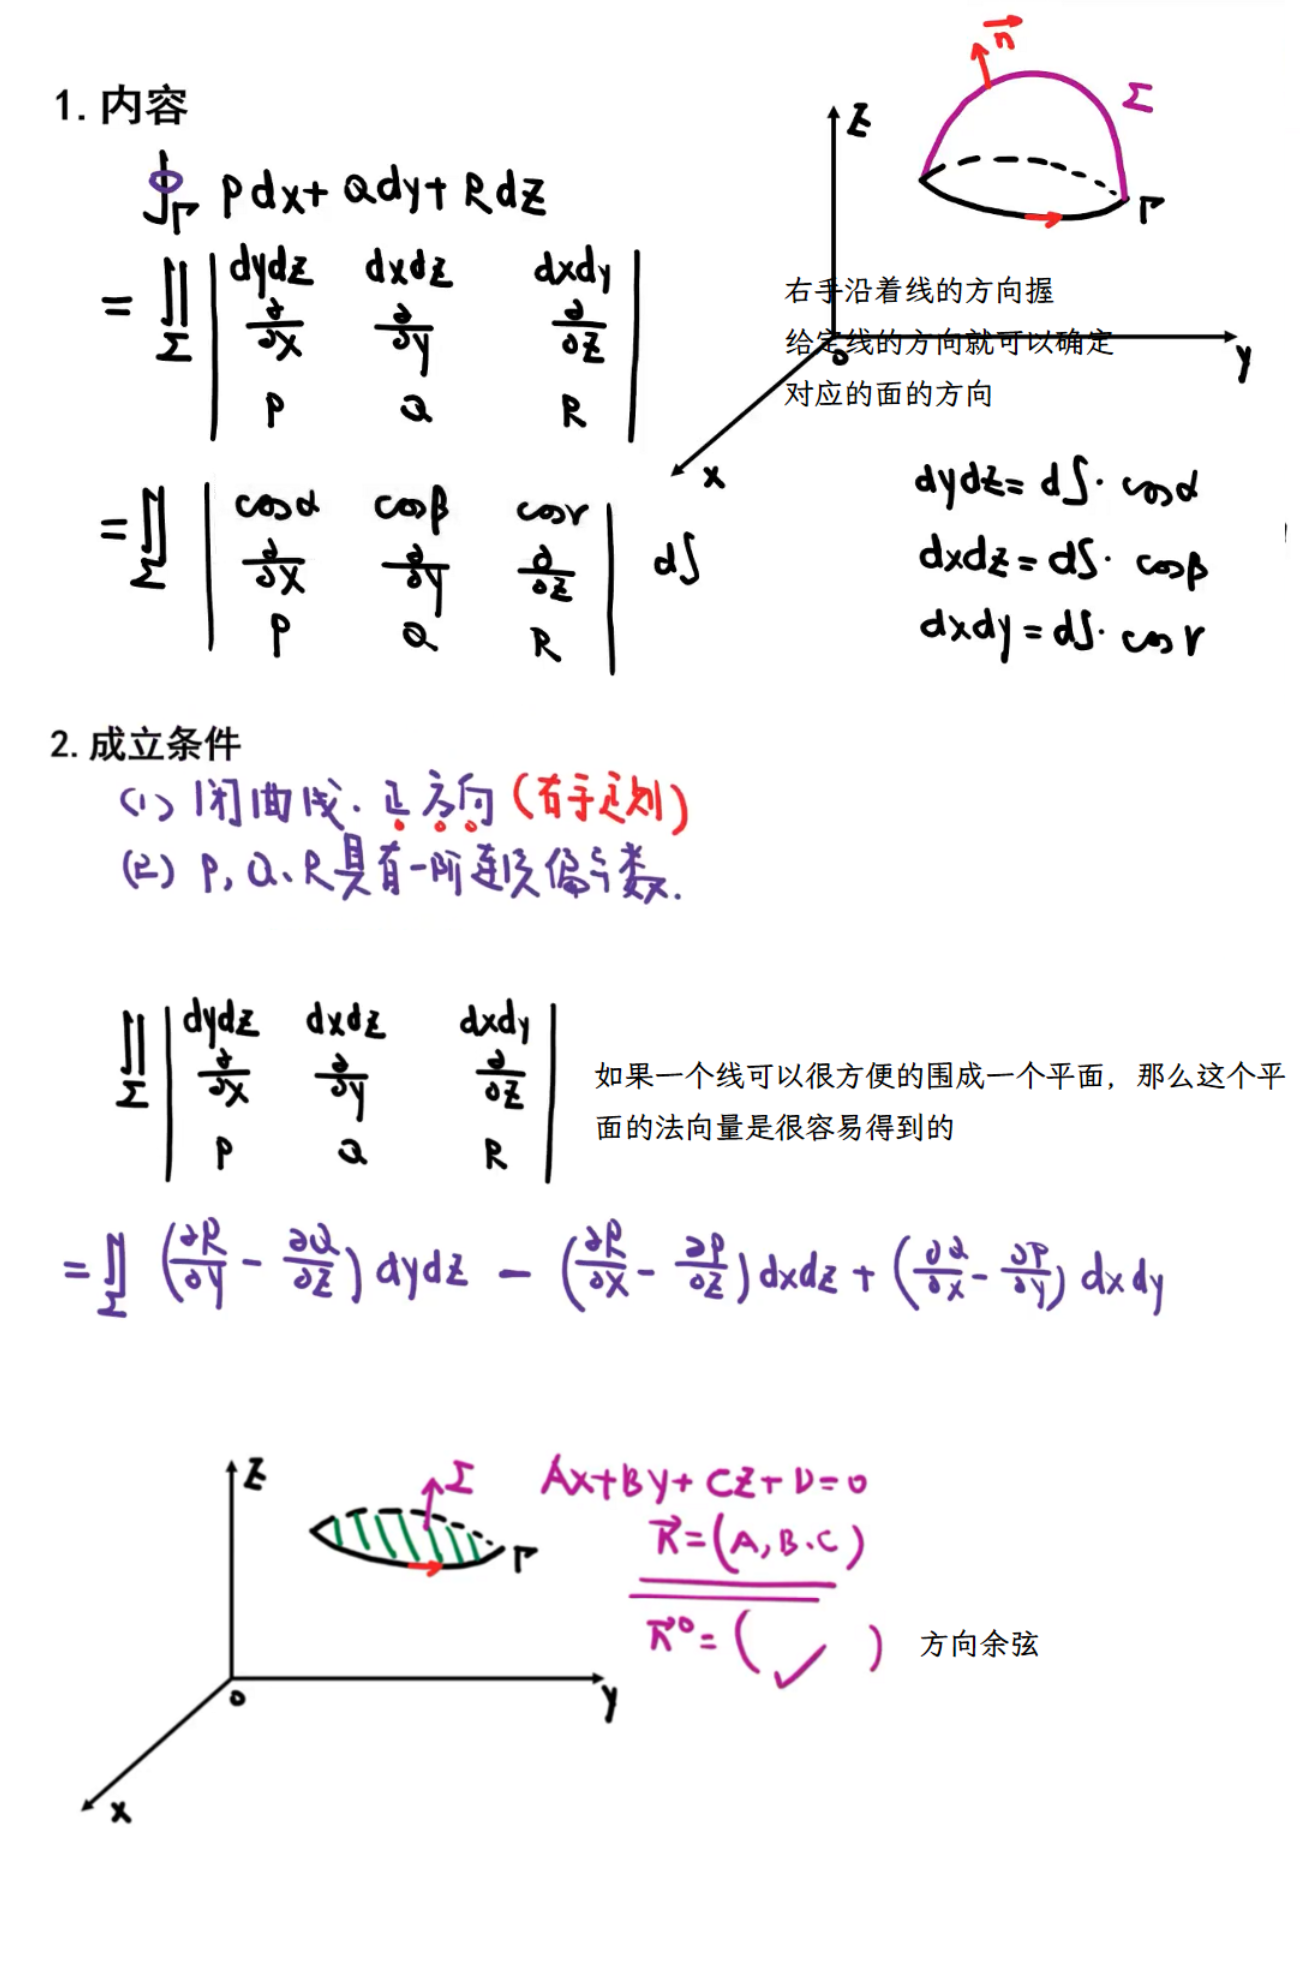 1. 内容
∮_Γ Pdx+Qdy+Rdz
= ∬_Σ | dydz dxdz dxdy |
| ∂/∂x ∂/∂y ∂/∂z |
| P Q R |
= ∬_Σ | cosα cosβ cosγ | dS
| ∂/∂x ∂/∂y ∂/∂z |
| P Q R |
n
Σ
Γ
z
o
y
x
右手沿着线的方向握
给定线的方向就可以确定
对应的面的方向
dydz = dS· cosα
dxdz = dS· cosβ
dxdy = dS· cosγ
2. 成立条件
(1) 闭曲线. 正方向 (右手定则)
(2) P, Q、R具有一阶连续偏导数.
∬_Σ | dydz dxdz dxdy |
| ∂/∂x ∂/∂y ∂/∂z |
| P Q R |
如果一个线可以很方便的围成一个平面，那么这个平
面的法向量是很容易得到的
= ∬_Σ (∂R/∂y - ∂Q/∂z) dydz - (∂R/∂x - ∂P/∂z) dxdz + (∂Q/∂x - ∂P/∂y) dxdy
z
Σ
Γ
o
y
x
Ax+By+Cz+D=0
n=(A,B.C)
n°=( ✓ )
方向余弦